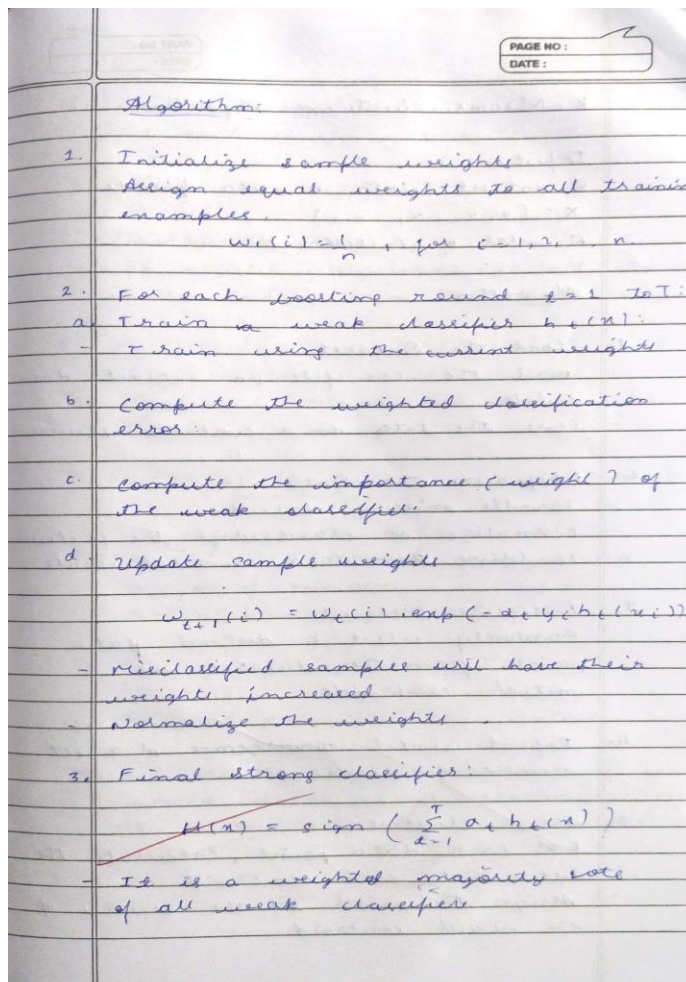 PAGE NO :
DATE :
Algorithm:
1. Initialize sample weights
Assign equal weights to all trainin
examples.
w₁(i) = 1/n , for i = 1, 2, . . n.
2. For each boosting round t = 1 to T:
a. Train a weak classifier h t (x):
- Train using the current weights
b. Compute the weighted classification
error:
c. Compute the importance (weight) of
the weak classifier.
d. Update sample weights
w t+1 (i) = w t (i) . exp (- α t y i h t (x i))
- Misclassified samples will have their
weights increased
- Normalize the weights .
3. Final strong classifier:
H(x) = sign ( T Σ t=1 α t h t (x) )
- It is a weighted majority vote
of all weak classifiers